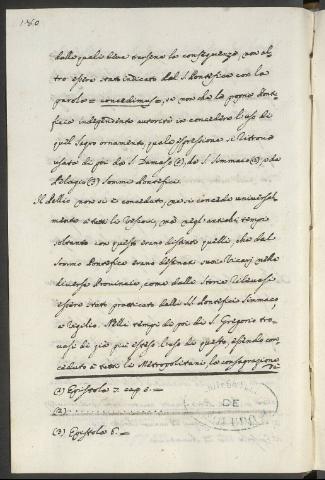 180
dalle quali bene trasena la conseguenza, non al-
tro essere stato indicato dal S. Pontefice con la
parola = concedimus =, se non che la propria Ponti-
ficia independente autorità in concedere l'uso di
quel Sagro ornamento, quale espressione si ritrova
usata di poi da S. Damaso (1), da S. Simmaco (2), e da
Pelagio (3) Sommi Pontefici.
Il Pallio non si è conceduto, ne si concede universal-
mente a tutti li Vescovi, mà negl'antichi tempi
soltanto con questo erano distinti quelli, che dal
Sommo Pontefice erano destinati suoi Vicarj nelle
diverse Provincie, come dalle Storie rilevasi
essere stato pratticato dalli SS. Pontefici Simmaco,
e Vigilio. Nelli tempi di poi di S. Gregorio tro-
vasi di già più esteso l'uso di questo, essendo con-
ceduto a tutti li Metropolitani, la consagrazione
di
(1) Epistola 7. cap. 6. =
(2) . . . . . . . . . . . . . . . . . .
(3) Epistola 6. =
DE